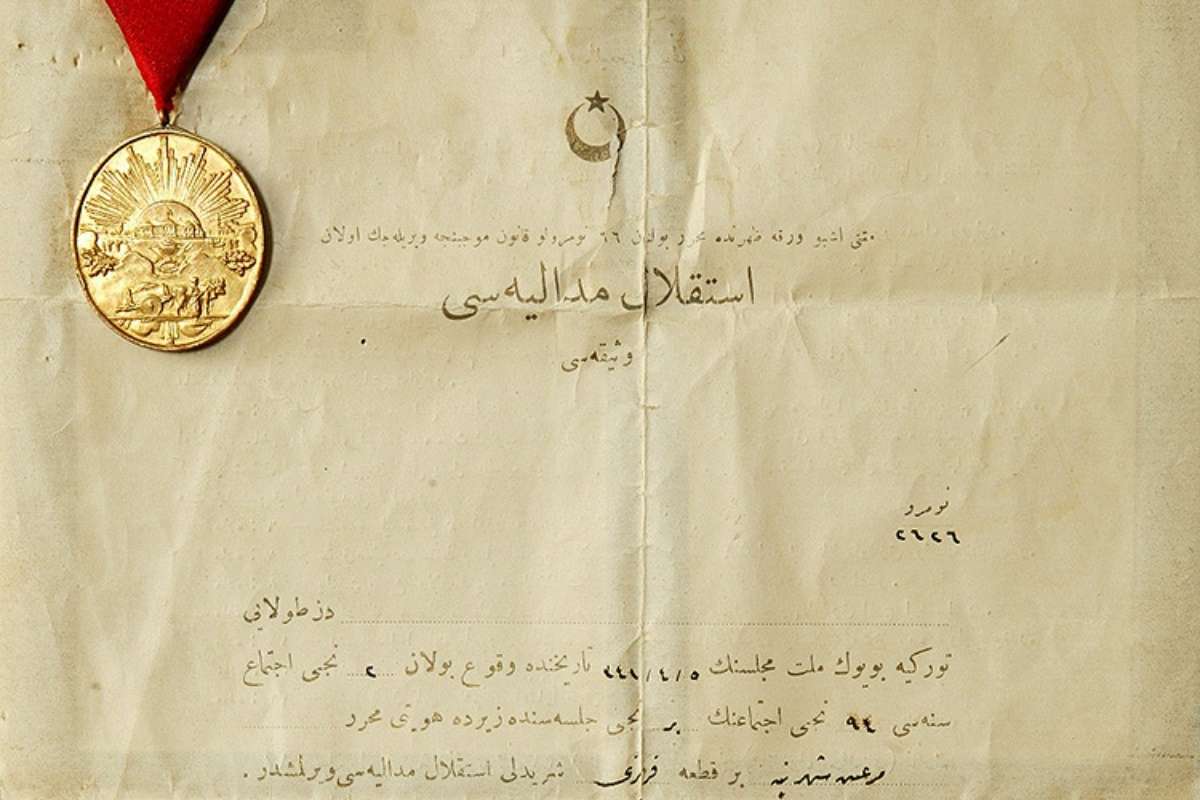 متنی اشبو ورقه ظهرنده محرر بولنان ٦٦ نومرولو قانون موجبنجه ويريله‌جك اولان
استقلال مداليه‌سی
وثيقه‌سی
نومرو
٢٦٢٦
دن طولايی
توركيه بويوك ملت مجلسنك ٥/٤/٣٤١ تاريخنده وقوع بولان ٢ نجی اجتماع
سنه‌سی ٩٤ نجی اجتماعنك بر نجی جلسه‌سنده زيرده هويتی محرر
مرعش شهرينه بر قطعه شريدلی استقلال مداليه‌سی ويرلمشدر .